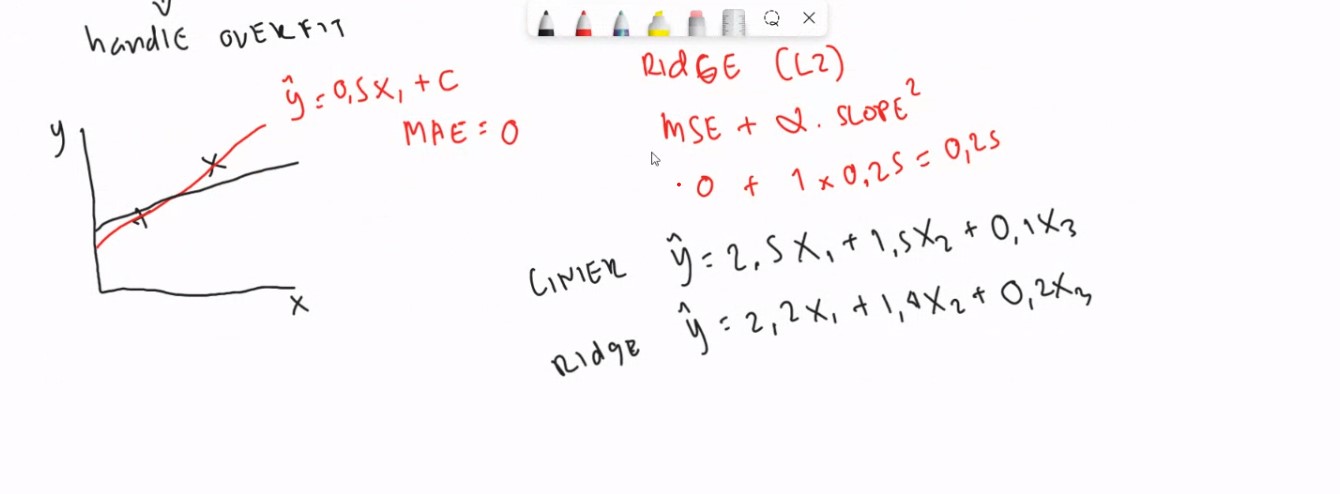 handle OVERFIT
ŷ = 0,5x₁ + C
MAE = 0
y
x
RIDGE (L2)
MSE + α. SLOPE²
0 + 1 x 0,25 = 0,25
LINIER ŷ = 2,5x₁ + 1,5x₂ + 0,1x₃
RIdgE ŷ = 2,2x₁ + 1,4x₂ + 0,2x₃